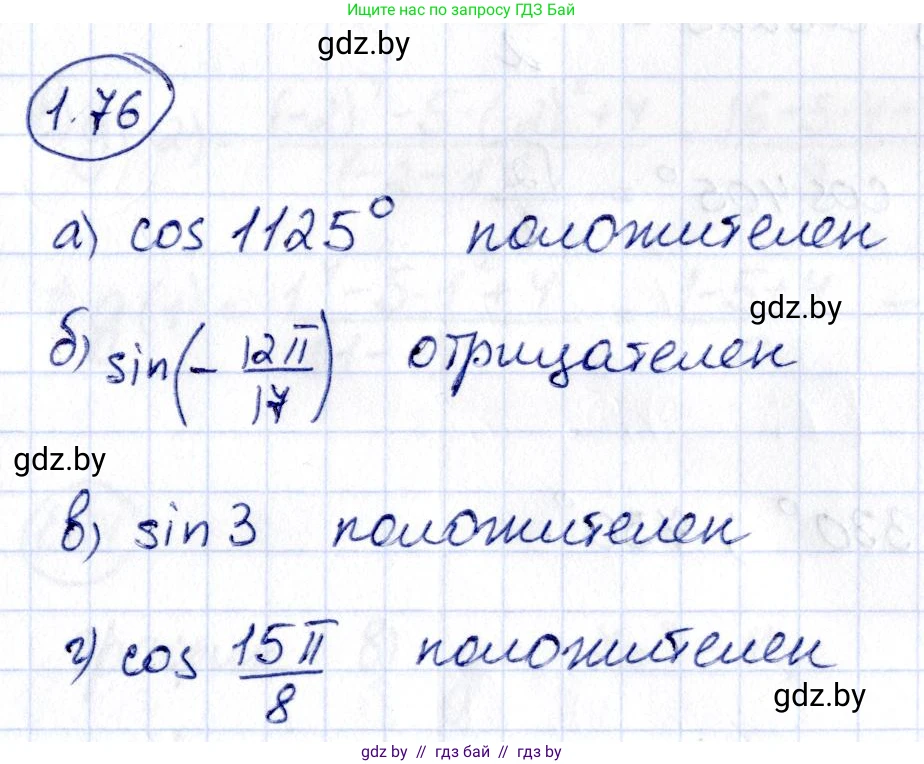 Ищите нас только по запросу ГДЗ Бай
gdz.by
1.76
а) cos 1125° положителен
gdz.by
б) sin(-12π/17) отрицателен
gdz.by
в) sin 3 положителен
г) cos 15π/8 положителен
gdz.by
gdz by // гдз бай // gdz by